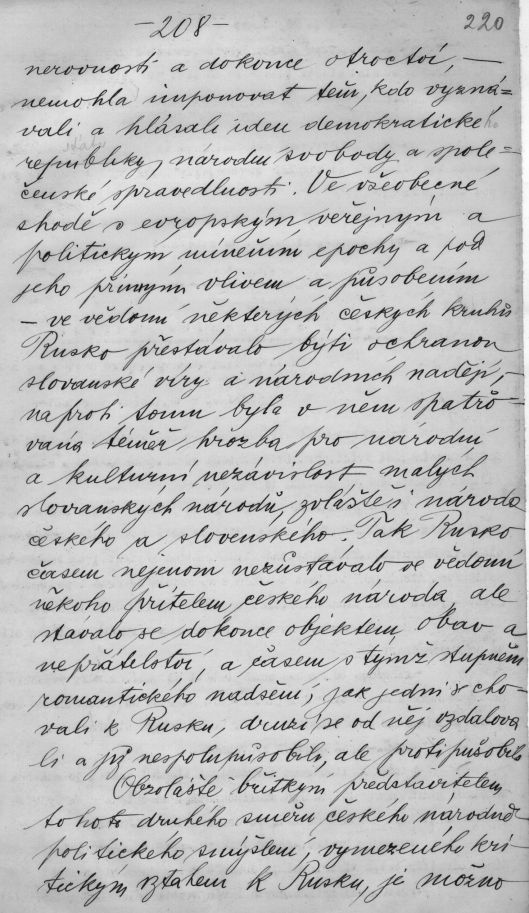 -208-
220
nerovnosti a dokonce otroctví, —
nemohla imponovat těm, kdo vyzná=
vali a hlásali ideu demokratické
republiky, národní svobody a spole=
čenské spravedlnosti. Ve všeobecné
shodě s evropským veřejným a
politickým míněním epochy a pod
jeho přímým vlivem a působením
– ve vědomí některých českých kruhů
Rusko přestávalo býti ochranou
slovanské víry a národních nadějí, –
naproti tomu byla v něm spatřo=
vána téměř hrozba pro národní
a kulturní nezávislost malých
slovanských národů, zvláště i národa
českého a slovenského. Tak Rusko
časem nejenom nezůstávalo ve vědomí
někoho přítelem českého národa, ale
stávalo se dokonce objektem obav a
nepřátelství, a časem s týmž stupněm
romantického nadšení, jak jedni se cho-
vali k Rusku, druzí se od něj vzdalova
li a již nespolupůsobili, ale protipůsobili
Obzvláště břitkým představitelem
tohoto druhého směru českého národně
politického smýšlení, vymezeného kri-
tickým vztahem k Rusku, je možno